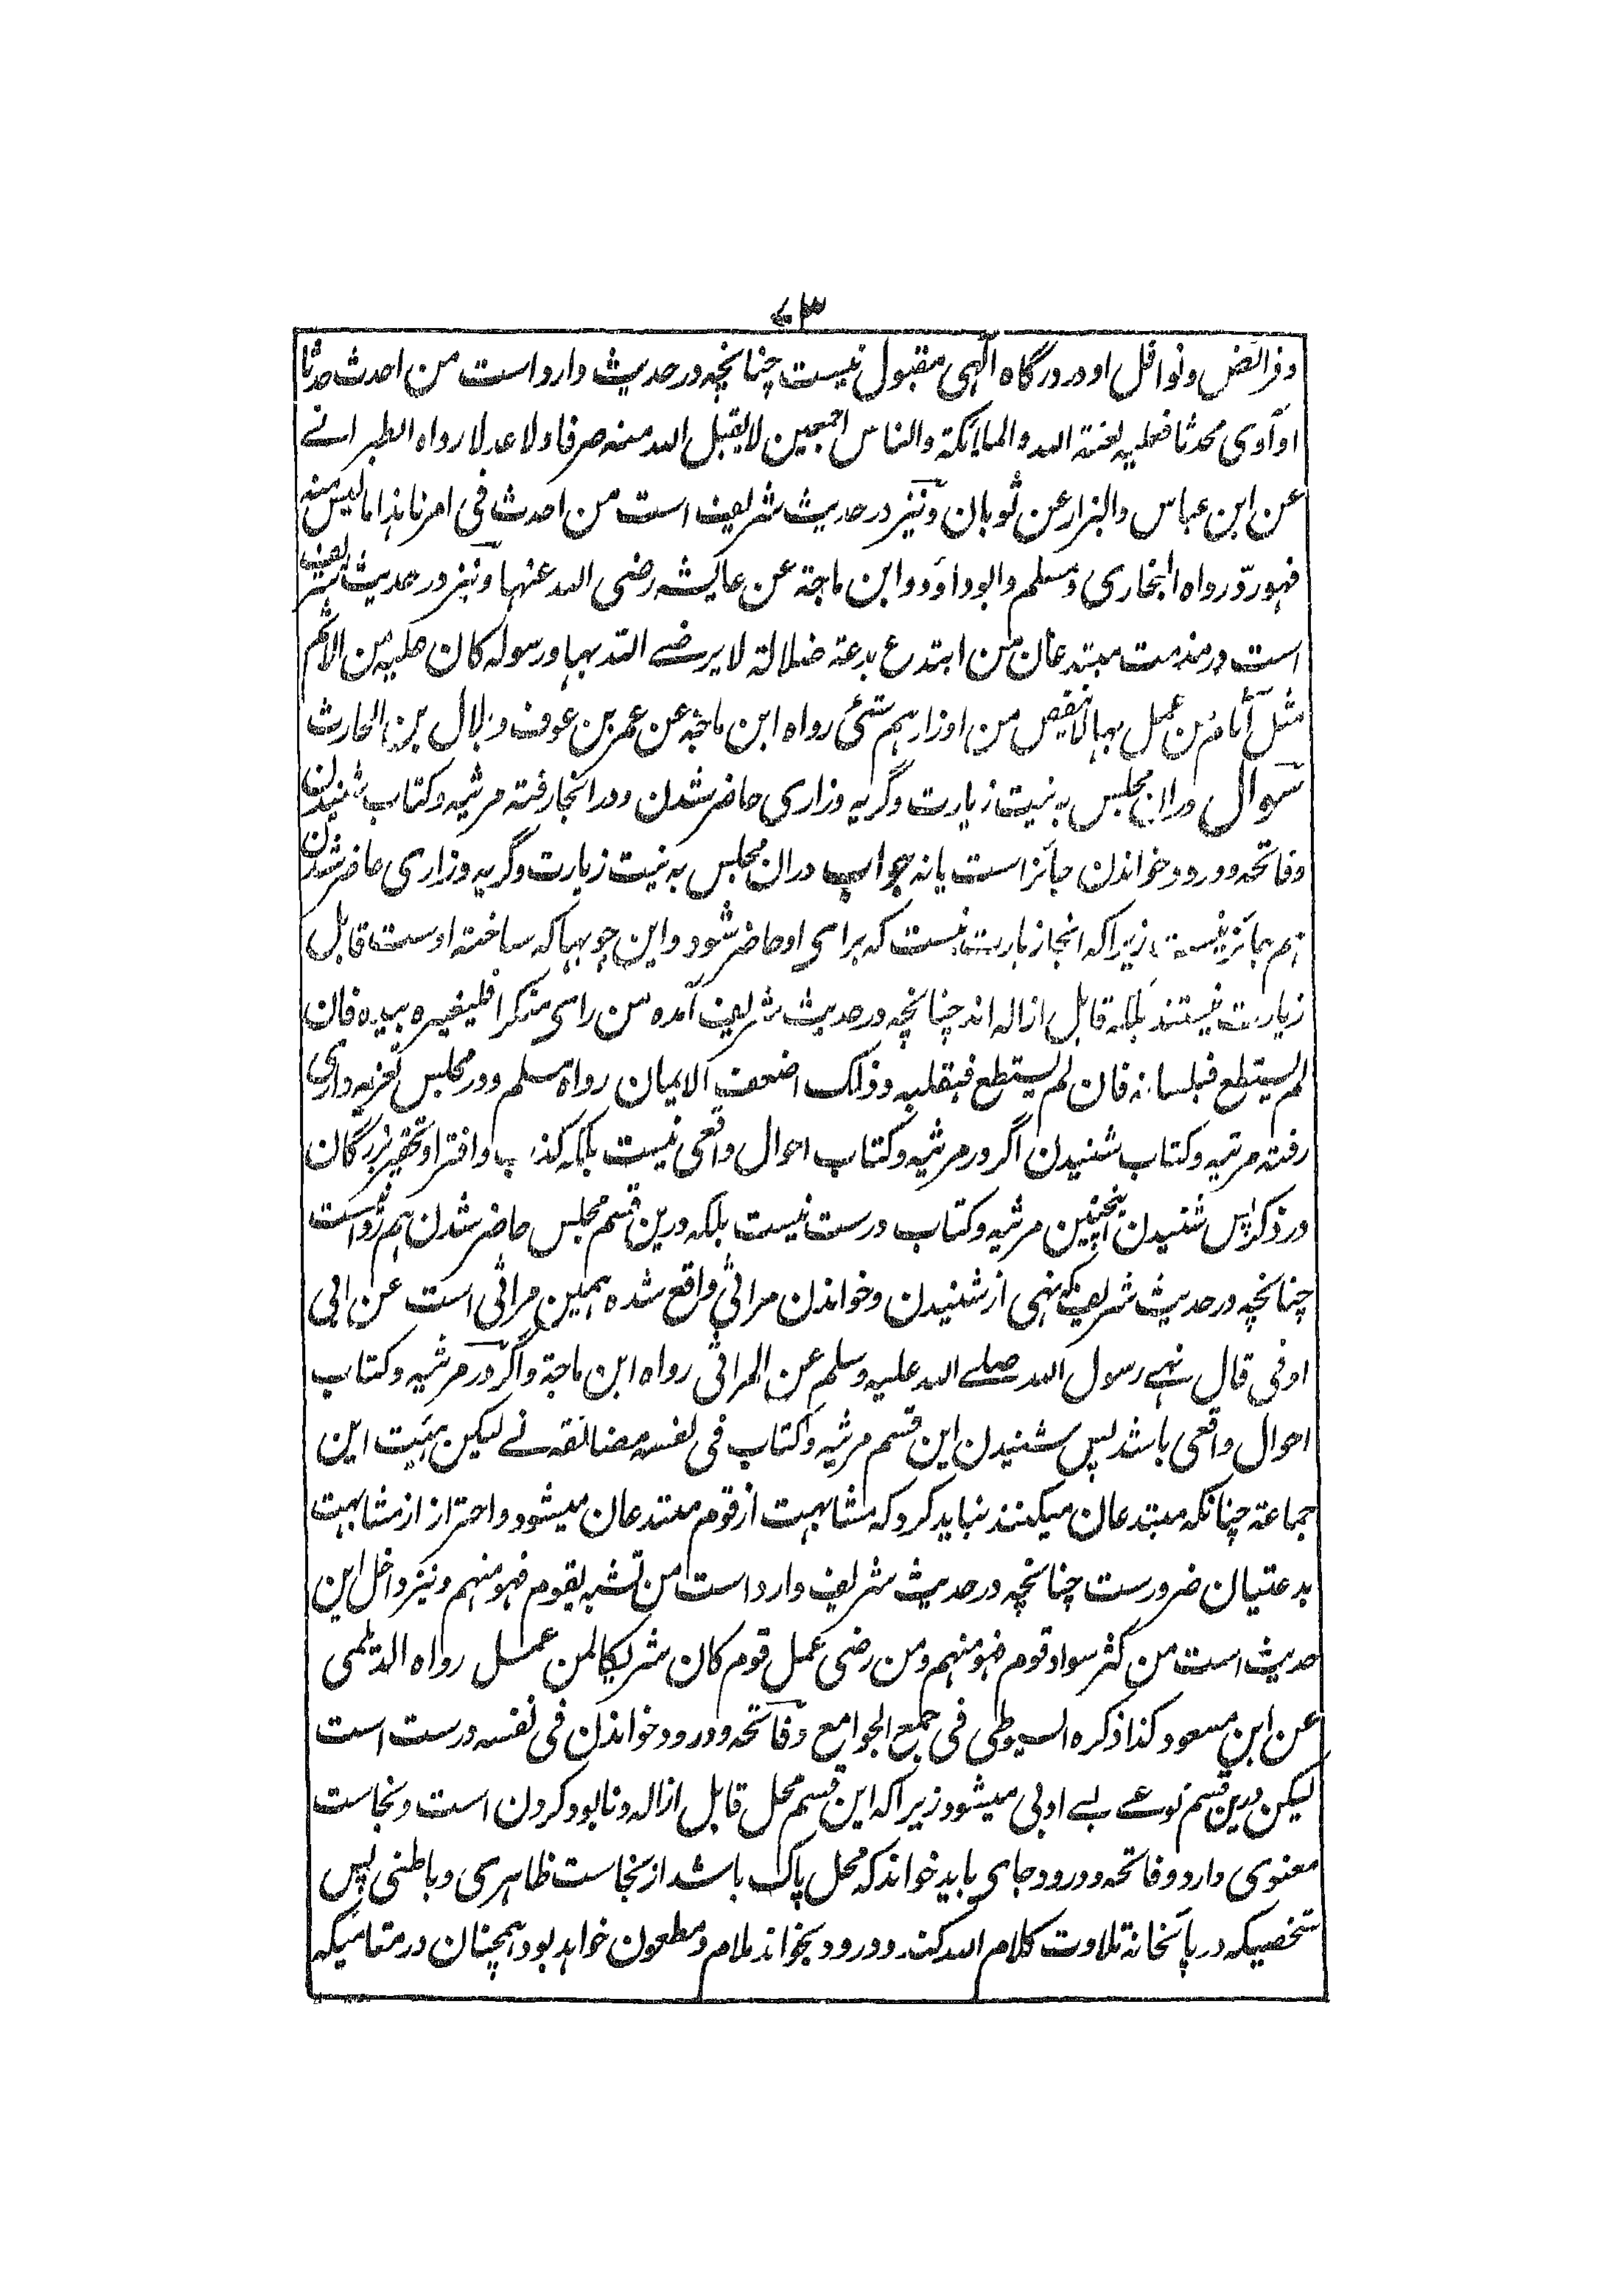 ۷۳
وفرائض و نوافل او در درگاه الٰهی مقبول نیست چنانچه در حدیث وارد است من احدث حدثا
او آوی محدثا فعلیه لعنة الله والملائكة والناس اجمعین لایقبل الله منه صرفا ولا عدلا رواه الطبرانے
عن ابن عباس والبزار عن ثوبان ونیز در حدیث شریف است من احدث فی امرنا هذا ما لیس منه
فهو رد رواه البخاری ومسلم وابوداؤد وابن ماجة عن عایشه رضی الله عنها ونیز در حدیث شریف
است در مذمت مبتدعان من ابتدع بدعة ضلالة لا یرضے الله بها ورسوله كان علیه من الاثم
مثل آثام من عمل بها لاینقص من اوزارهم شئ رواه ابن ماجة عن عمر بن عوف وبلال بن الحارث
سوال دران مجلس به نیت زیارت وگریه وزاری حاضر شدن ودر انجا رفته مرثیه وکتاب شنیدن
وفاتحه ودرود خواندن جائز است یا نه جواب دران مجلس به نیت زیارت وگریه وزاری حاضر شدن
هم جائز نیست زیراکه انجا زیارت نیست که برای او حاضر شود واین چوبها که ساخته اوست قابل
زیارت نیستند بلکه قابل ازاله اند چنانچه در حدیث شریف آمده من رای منکرا فلیغیره بیده فان
لم یستطع فبلسانه فان لم یستطع فبقلبه وذلك اضعف الایمان رواه مسلم ودر مجلس تعزیه داری
رفته مرثیه وکتاب شنیدن اگر در مرثیه وکتاب احوال واقعی نیست بلکه کذب وافترا وتحقیر بزرگان
در ذکر پس شنیدن اینچنین مرثیه وکتاب درست نیست بلکه درین قسم مجلس حاضر شدن هم نرواست
چنانچه در حدیث شریف که نهی از شنیدن وخواندن مراثی واقع شده همین مراثی است عن ابی
اوفی قال نهے رسول الله صلے الله علیه وسلم عن المراثی رواه ابن ماجة واگر در مرثیه وکتاب
احوال واقعی باشد پس شنیدن این قسم مرثیه وکتاب فی نفسه مضائقه نے لیکن هیئت این
جماعة چنانکه مبتدعان میکنند نباید کرد که مشابهت از قوم مبتدعان میشود واحتراز از مشابهت
بدعتیان ضرورست چنانچه در حدیث شریف وارد است من تشبه بقوم فهو منهم ونیز داخل این
حدیث است من کثر سواد قوم فهو منهم ومن رضی عمل قوم کان شریکا لمن عمل رواه الدیلمی
عن ابن مسعود کذا ذکره السیوطی فی جمع الجوامع وفاتحه ودرود خواندن فی نفسه درست است
لیکن درین قسم نوعے بے ادبی میشود زیراکه این قسم محل قابل ازاله ونابود کردن است ونجاست
معنوی دارد وفاتحه ودرود جای باید خواند که محل پاک باشد از نجاست ظاهری وباطنی پس
شخصیکه در پائخانه تلاوت کلام الله کند ودرود بخواند ملام ومطعون خواهد بود همچنان در مقامیکه